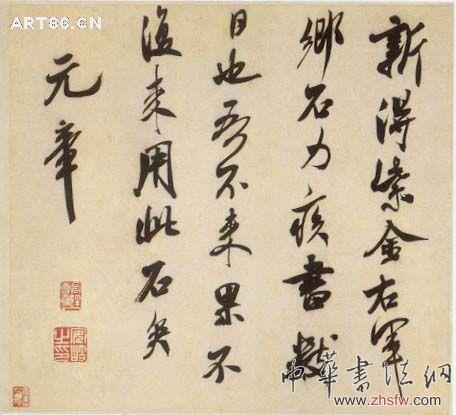 ART86.CN
新得紫金右軍
鄉石力疾書數
日也吾不来果不
復来用此石矣
元章
中華書法網
www.zhsfw.com